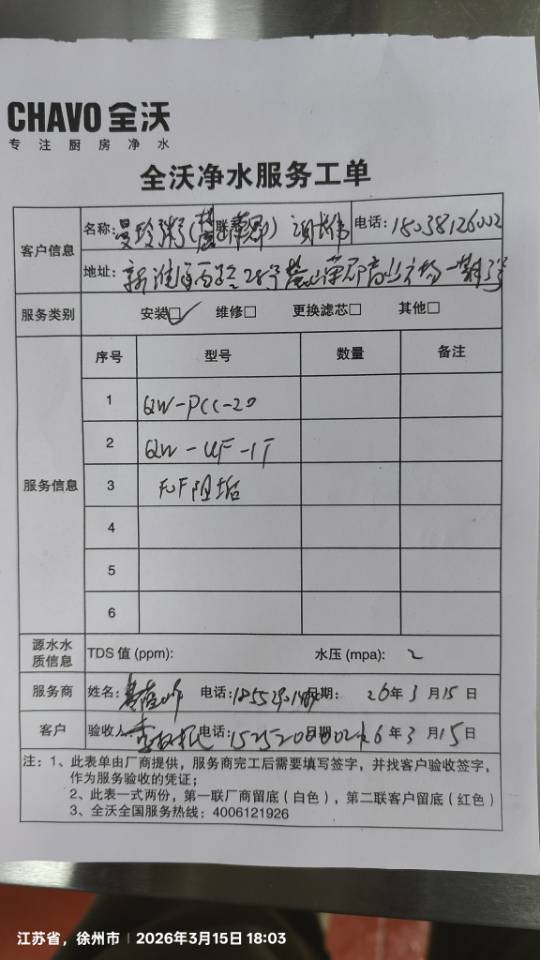 CHAVO 全沃
专注厨房净水
全沃净水服务工单
客户信息
名称: 曼玲粥 电话: 15038126002
地址: 新淮海西路28号 一期
服务类别 安装□ 维修□ 更换滤芯□ 其他□
服务信息
序号 型号 数量 备注
1 QW-PCC-20
2 QW-UF-1T
3 阻垢
4
5
6
源水水质信息 TDS 值 (ppm): 水压 (mpa): 2
服务商 姓名: 电话: 日期: 26年3月15日
客户 验收人 电话: 26年3月15日
注：1、此表单由厂商提供，服务商完工后需要填写签字，并找客户验收签字，
作为服务验收的凭证；
2、此表一式两份，第一联厂商留底（白色），第二联客户留底（红色）
3、全沃全国服务热线：4006121926
江苏省，徐州市 | 2026年3月15日 18:03